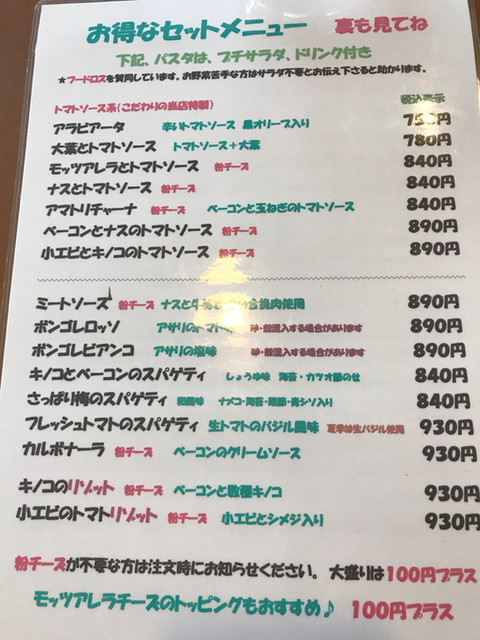 お得なセットメニュー 裏も見てね
下記、パスタは、プチサラダ、ドリンク付き
★フードロスを賛同しています。お野菜苦手な方はサラダ不要とお伝え下さると助かります。
トマトソース系(こだわりの当店特製) 税込表示
アラビアータ 辛いトマトソース 黒オリーブ入り 750円
大葉とトマトソース トマトソース+大葉 780円
モッツアレラとトマトソース 粉チーズ 840円
ナスとトマトソース 粉チーズ 840円
アマトリチャーナ 粉チーズ ベーコンと玉ねぎのトマトソース 840円
ベーコンとナスのトマトソース 粉チーズ 890円
小エビとキノコのトマトソース 粉チーズ 890円
ミートソース 粉チーズ ナスと牛 合挽肉使用 890円
ボンゴレロッソ アサリのトマト味 砂・殻混入する場合があります 890円
ボンゴレビアンコ アサリの塩味 砂・殻混入する場合があります 890円
キノコとベーコンのスパゲティ しょうゆ味 海苔・カツオ節のせ 840円
さっぱり梅のスパゲティ 和風味 ナメコ・海苔・鰹節・青シソ入り 840円
フレッシュトマトのスパゲティ 生トマトのバジル風味 夏季は生バジル使用 930円
カルボナーラ 粉チーズ ベーコンのクリームソース 930円
キノコのリゾット 粉チーズ ベーコンと数種キノコ 930円
小エビのトマトリゾット 粉チーズ 小エビとシメジ入り 930円
粉チーズが不要な方は注文時にお知らせください。 大盛りは100円プラス
モッツアレラチーズのトッピングもおすすめ♪ 100円プラス